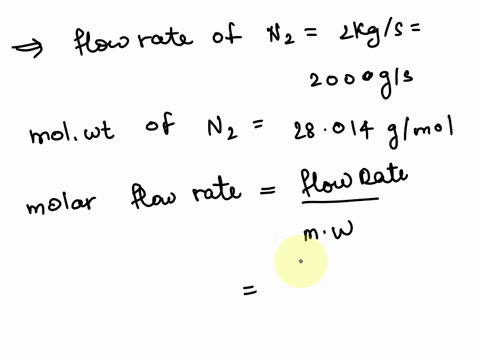 ⇒ flow rate of N2 = 2kg/s =
2000g/s
mol.wt of N2 = 28.014 g/mol
molar flow rate = flow Rate
m.w
=